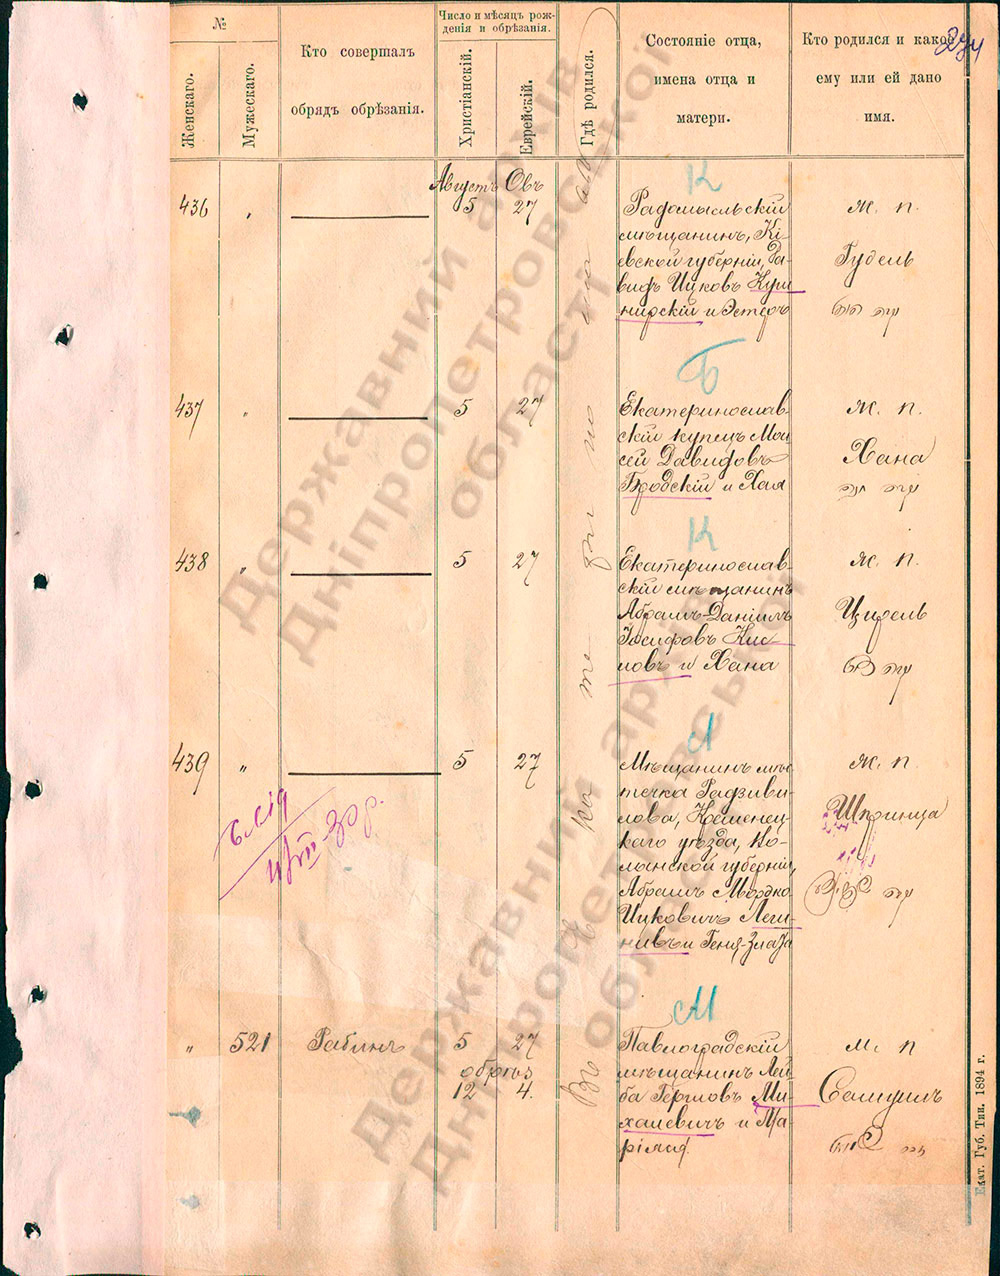 №
Женскаго.
Мужескаго.
Кто совершалъ
обрядъ обрѣзанія.
Число и мѣсяцъ рож-
денія и обрѣзанія.
Христіанскій.
Еврейскій.
Гдѣ родился.
Состояніе отца,
имена отца и
матери.
Кто родился и какое
ему или ей дано
имя.
Августъ Овъ
436 „ 5 27
К
Радомысльскій
мѣщанинъ, Кі-
евской губерніи, Да-
видъ Ицковъ Куш-
нирскій и Эстеръ
ж. п.
Гудель
437 „ 5 27
Б
Екатеринослав-
скій купецъ Мои
сей Давидовъ
Бродскій и Хая
ж. п.
Хана
438 „ 5 27
К
Екатеринослав-
скій мѣщанинъ
Абрамъ-Даніилъ
Іосифовъ Кис-
ловъ и Хана
ж. п.
Цирель
439 „ 5 27
Л
Мѣщанинъ мѣс
течка Радзиви-
лова, Кременец-
каго уѣзда, Во-
лынской губерніи,
Абрамъ Мордко
Ицковичъ Леги-
нивъ и Геня-Злата
ж. п.
Шпринца
„ 521 Рабинъ 5 27
обрѣз
12 4.
М
Павлоградскій
мѣщанинъ Лей
ба Гершовъ Ми-
халевичъ и Ма-
ріями
м. п
Самуилъ
Въ Екатеринославлѣ
Екат. Губ. Тип. 1894 г.
Державний архів
Дніпропетровської
області
Державний архів
Дніпропетровської
області